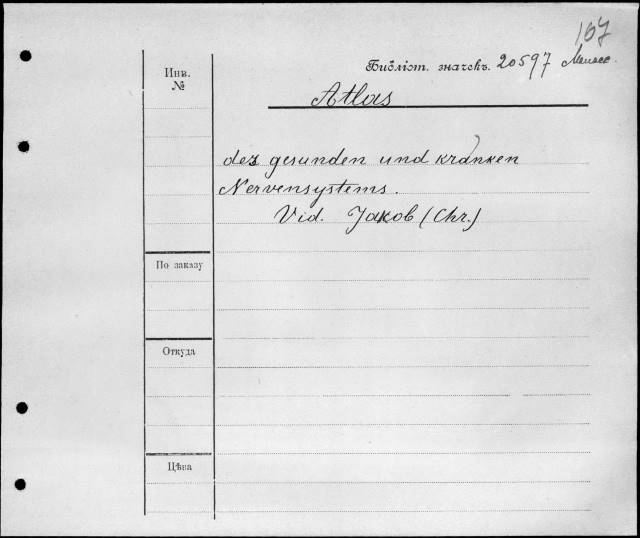 107
Инв.
№
Библіот. значекъ. 20597
Atlas
des gesunden und kranken
Nervensystems.
Vid. Jakob (Chr.)
По заказу
Откуда
Цѣна